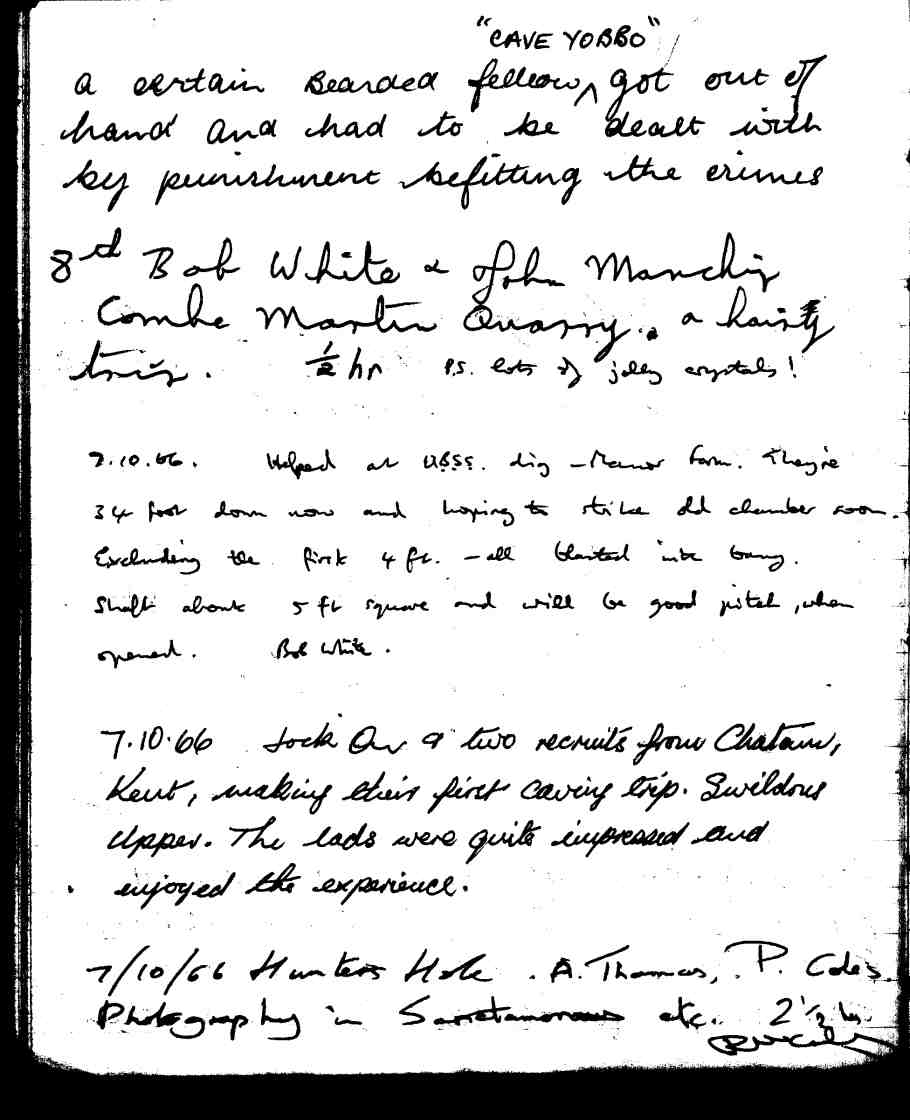 "CAVE YOBBO"
a certain Bearded fellow ^ got out of
hand and had to be dealt with
by punishment befitting the crimes
8th Bob White & John Manchip
Combe Martin Quarry. a hairy
trip. ½ hr P.S. lots of jolly crystals!
7.10.66. Helped at U.B.S.S. dig - Manor Farm. They're
34 foot down now and hoping to strike old chamber soon.
Excluding the first 4 ft. - all blasted into being.
Shaft about 5 ft square and will be good pitch, when
opened. Bob White.
7.10.66 Jock Orr & two recruits from Chatam,
Kent, making their first caving trip. Swildons
Upper. The lads were quite impressed and
enjoyed the experience.
7/10/66 Hunters Hole. A. Thomas, P. Coles.
Photography in etc. 2½ hrs.